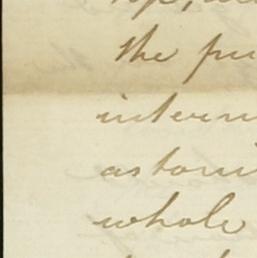 the pu
intern
astoni
whole